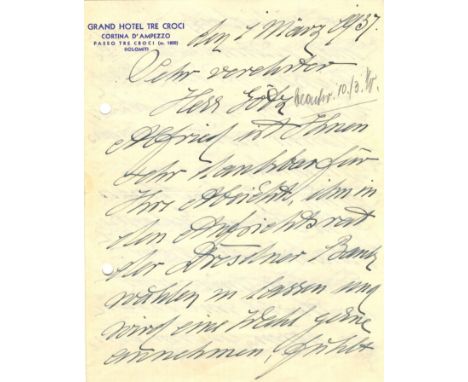 GRAND HOTEL TRE CROCI
CORTINA D'AMPEZZO
PASSO TRE CROCI (m. 1800)
DOLOMITI
den 1 März 1937.
Sehr verehrter
Herr Götz
beantw. 10./3.
ist Ihnen
sehr dankbar für
Ihre Absicht, ihn in
den Aufsichtsrat
der Dresdner Bank
wählen zu lassen und
wird eine Wahl gerne
annehmen, fühlt